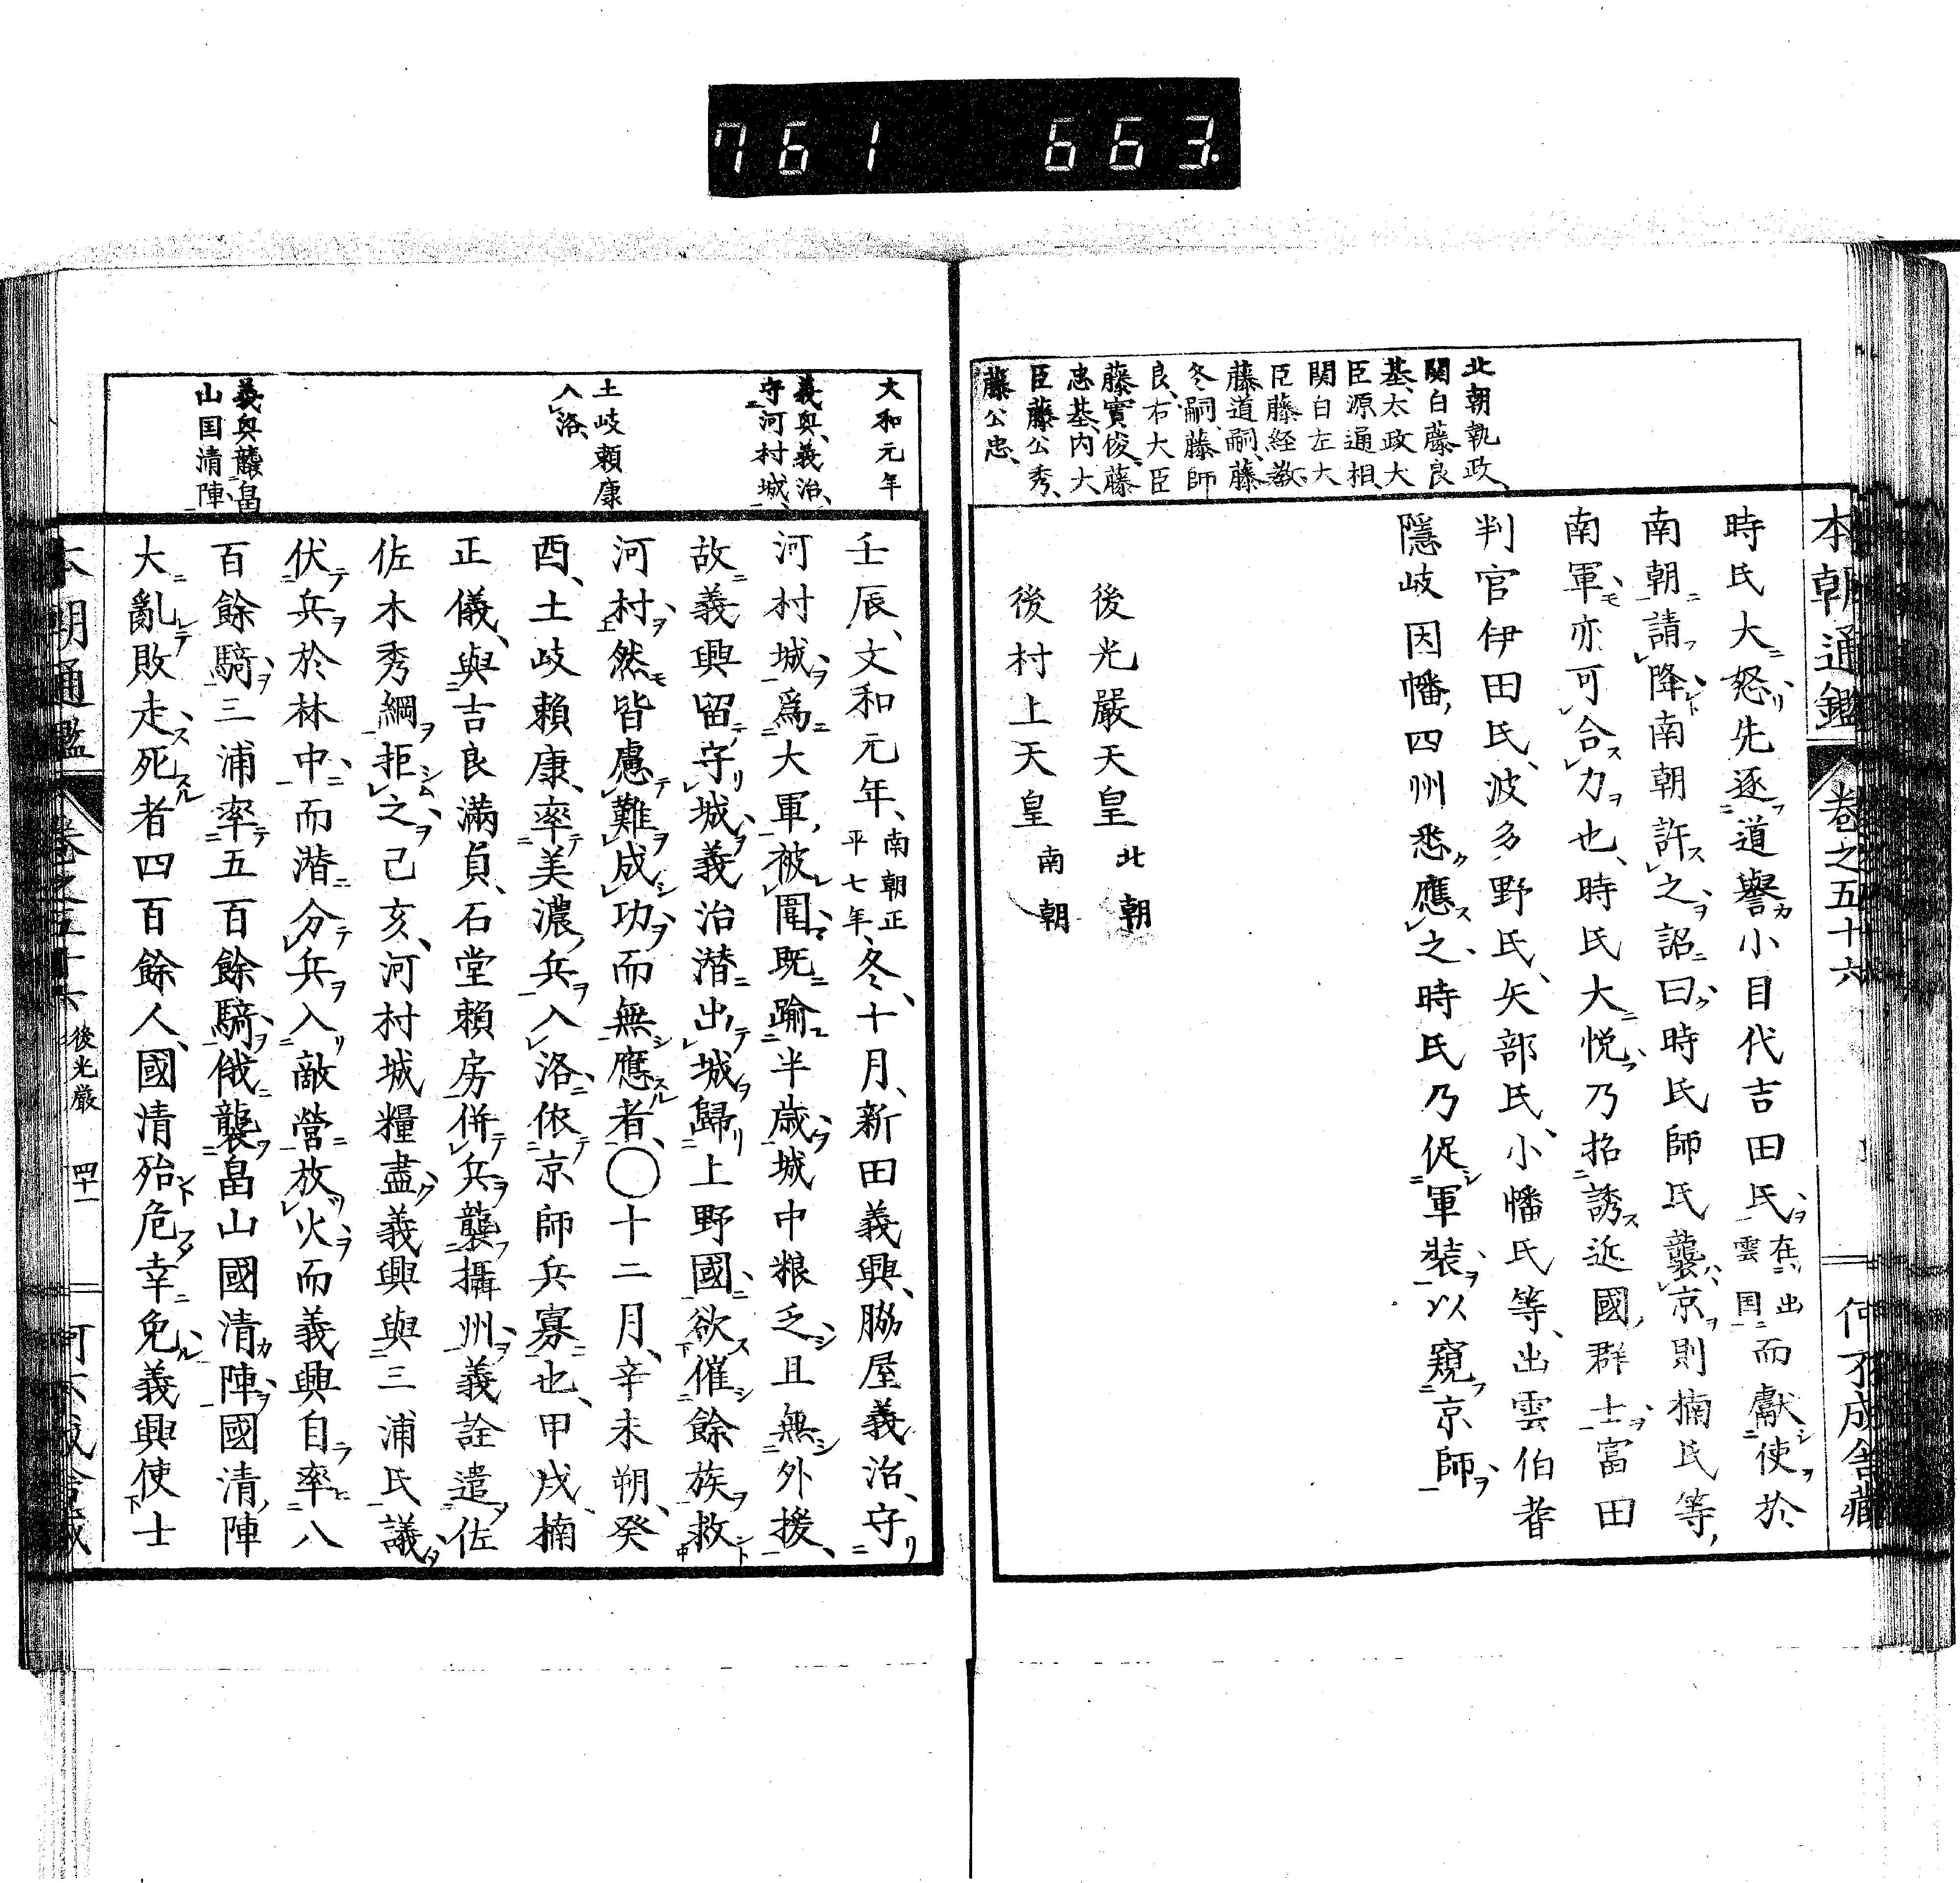 761 663.
本朝通鑑 巻之五十六 何不成舎蔵
北朝執政、
関白藤良
基、太政大
臣源通相、
関白左大
臣藤経教、
藤道嗣、藤
冬嗣、藤師
良、右大臣
藤實俊、藤
忠基、内大
臣藤公秀、
藤公忠、
時氏大怒先逐道譽小目代吉田氏在出雲国而獻使於
南朝請降南朝許之詔曰時氏師氏襲京則楠氏等
南軍亦可合力也、時氏大悦乃招誘近國群士富田
判官伊田氏、波多野氏、矢部氏、小幡氏等、出雲伯耆
隱岐因幡四州悉應之時氏乃促軍裝以窺京師
後光嚴天皇 北朝
後村上天皇 南朝
大和元年
義與、義治、
守河村城、
土岐頼康
入洛、
義與襲畠
山国清陣
壬辰、文和元年、南朝正平七年、冬、十月、新田義興、脇屋義治、守
河村城爲大軍被圍既踰半歳城中粮乏且無外援、
故義興留守城義治潜出城歸上野國欲催餘族救
河村然皆慮難成功而無應者、○十二月、辛未朔、癸
酉、土岐頼康、率美濃兵入洛依京師兵寡也、甲戌、楠
正儀、與吉良滿貞、石堂頼房併兵襲攝州義詮遣佐
佐木秀綱拒之己亥、河村城糧盡義興與三浦氏議
伏兵於林中而潜分兵入敵營放火而義興自率八
百餘騎三浦率五百餘騎俄襲畠山國清陣國清陣
大亂敗走死者四百餘人、國清殆危幸免義興使士
本朝通鑑 巻之五十六 後光嚴 四十一 何不成舎蔵